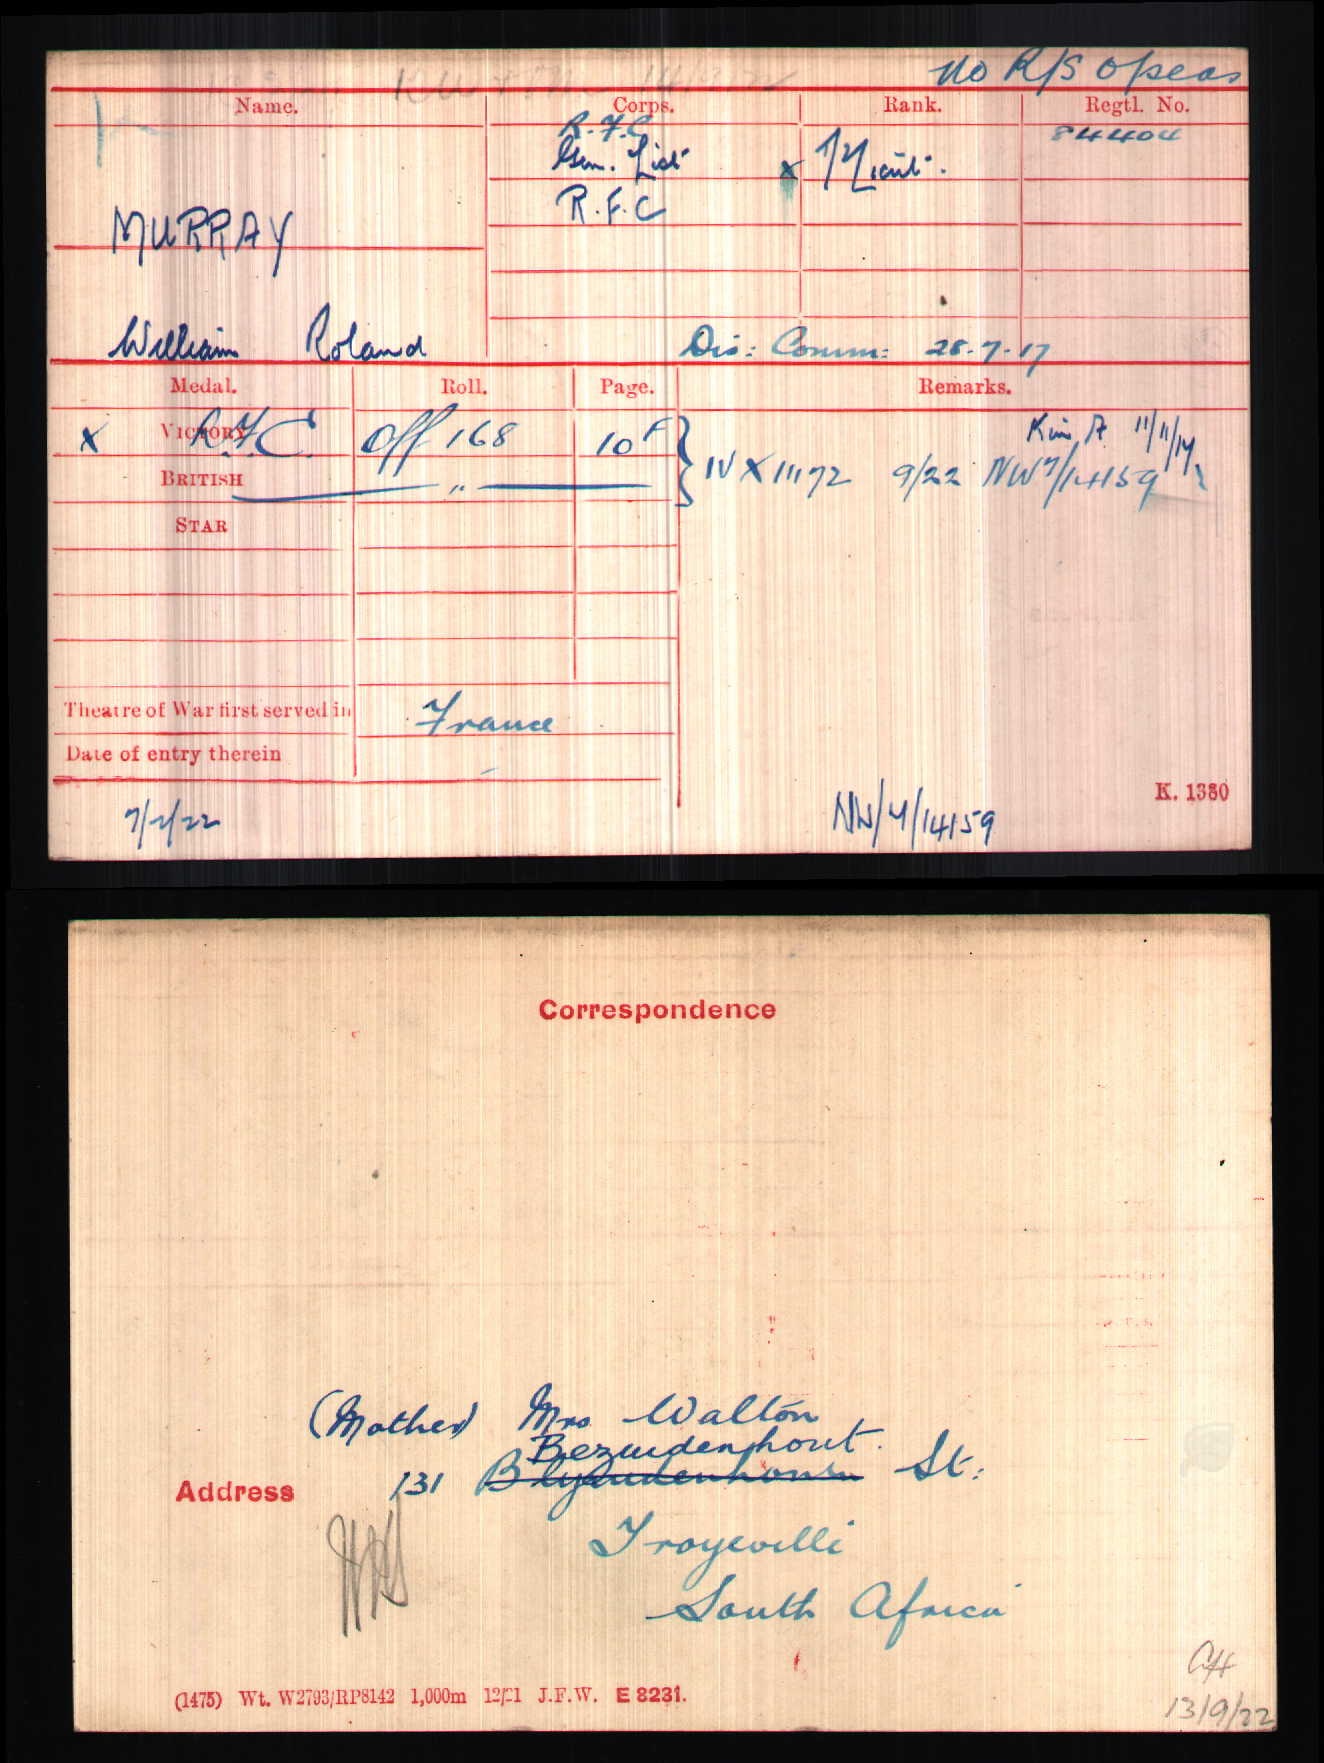 No R/S O/seas
Name. Corps. Rank. Regtl. No.
R.F.C. 84404
Gen. List x T/Lieut.
R.F.C
MURRAY
William Roland
Dis: Comm: 28-7-17
Medal. Roll. Page. Remarks.
x VICTORY R.F.C. Off 168 10F
BRITISH "
K in A. 11/11/17
IV X 11172 9/22 NW7/14159
STAR
Theatre of War first served in France
Date of entry therein
K. 1380
7/2/22 NW/7/14159
Correspondence
(Mother) Mrs Walton
Bezuidenhout
Address 131 St:
Troyeville
South Africa
13/9/22
(1475) Wt. W2793/RP8142 1,000m 12/21 J.F.W. E 8231.